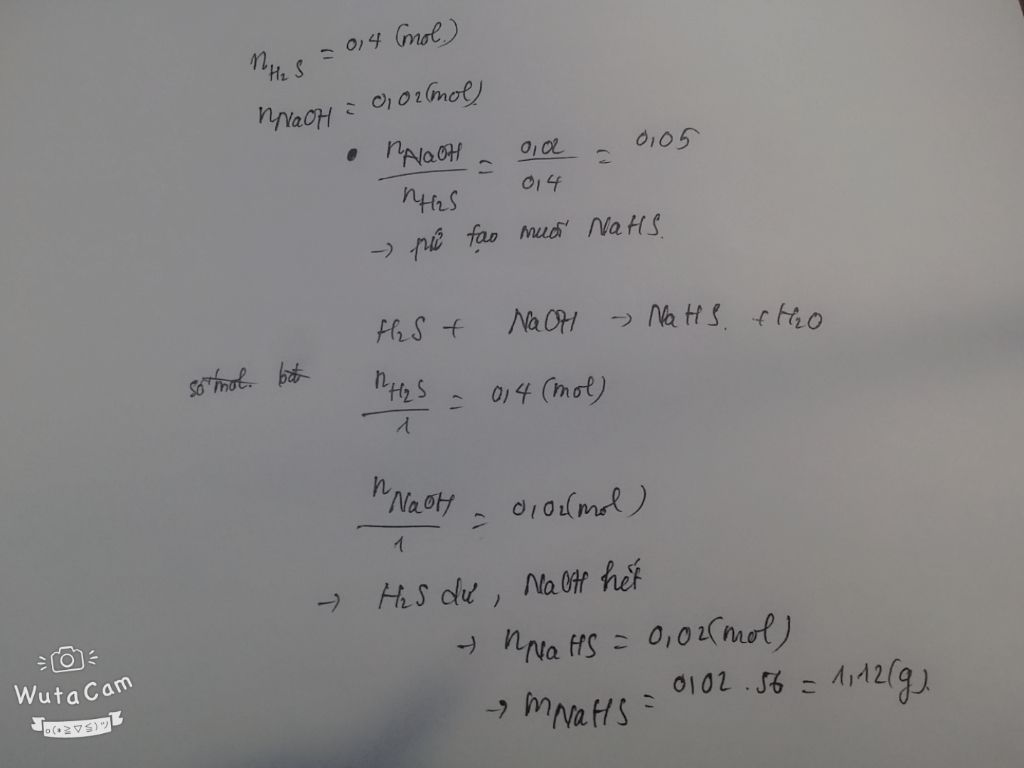 nH2S = 0,4 (mol)
nNaOH = 0,02(mol)
• nNaOH / nH2S = 0,02 / 0,4 = 0,05
→ pứ tạo muối NaHS.
H2S + NaOH → NaHS. + H2O
số mol
nH2S / 1 = 0,4 (mol)
nNaOH / 1 = 0,02(mol)
→ H2S dư, NaOH hết
→ nNaHS = 0,02(mol)
→ mNaHS = 0,02 . 56 = 1,12(g).
WutaCam